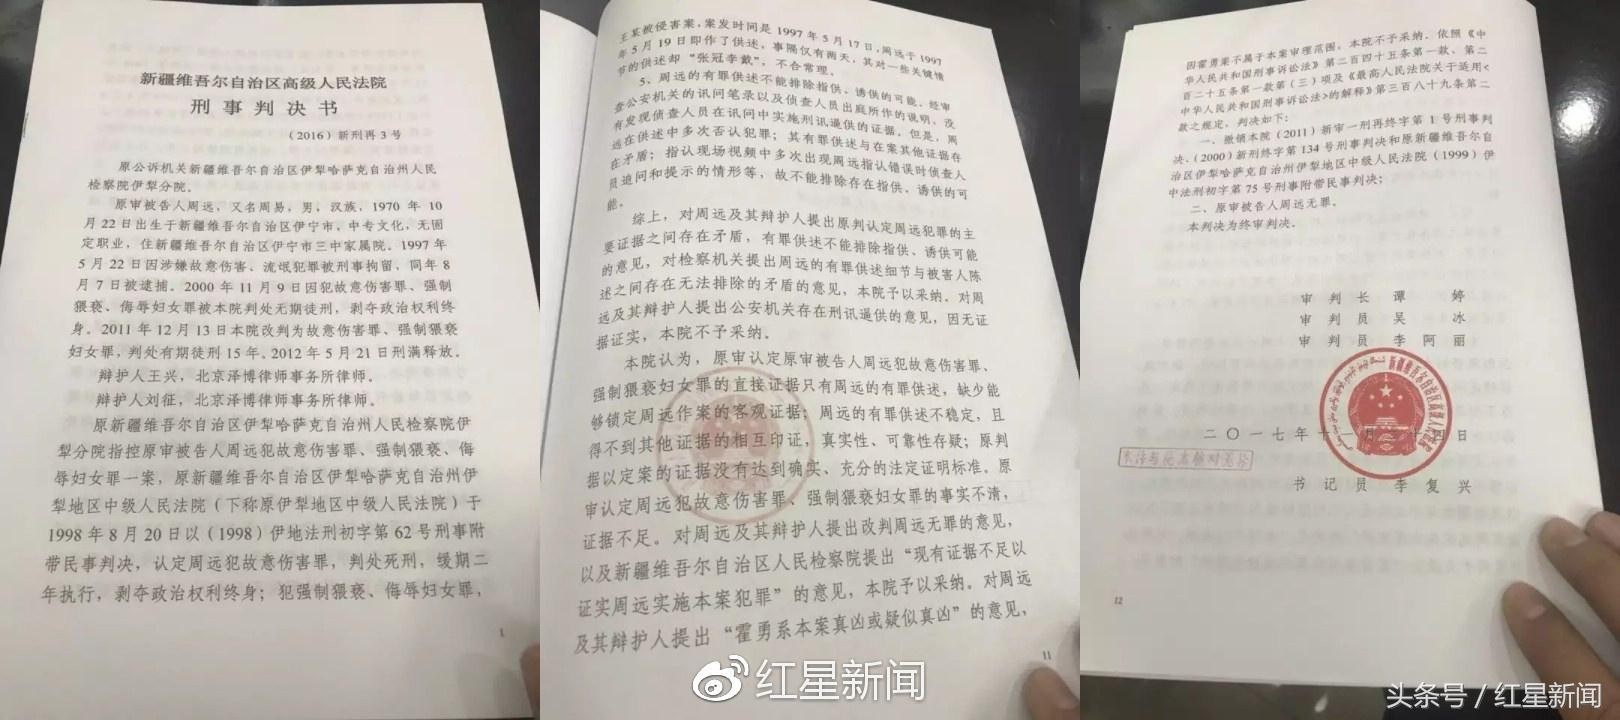 新疆维吾尔自治区高级人民法院
刑事判决书
（2016）新刑再3号
原公诉机关新疆维吾尔自治区伊犁哈萨克自治州人民
检察院伊犁分院。
原审被告人周远，又名周易，男，汉族，1970 年 10
月 22 日出生于新疆维吾尔自治区伊宁市，中专文化，无固
定职业，住新疆维吾尔自治区伊宁市三中家属院。1997 年
5 月 22 日因涉嫌故意伤害、流氓犯罪被刑事拘留，同年 8
月 7 日被逮捕。2000 年 11 月 9 日因犯故意伤害罪、强制
猥亵、侮辱妇女罪被本院判处无期徒刑，剥夺政治权利终
身。2011 年 12 月 13 日本院改判为故意伤害罪、强制猥亵
妇女罪，判处有期徒刑 15 年。2012 年 5 月 21 日刑满释放。
辩护人王兴，北京泽博律师事务所律师。
辩护人刘征，北京泽博律师事务所律师。
原新疆维吾尔自治区伊犁哈萨克自治州人民检察院伊
犁分院指控原审被告人周远犯故意伤害罪、强制猥亵、侮
辱妇女罪一案，原新疆维吾尔自治区伊犁哈萨克自治州伊
犁地区中级人民法院（下称原伊犁地区中级人民法院）于
1998 年 8 月 20 日以（1998）伊地法刑初字第 62 号刑事附
带民事判决，认定周远犯故意伤害罪，判处死刑，缓期二
年执行，剥夺政治权利终身；犯强制猥亵、侮辱妇女罪，
1
王某被侵害案，案发时间是 1997 年 5 月 17 日，周远于 1997
年 5 月 19 日即作了供述，事隔仅有两天，其对一些关键情
节的供述却“张冠李戴”，不合常理。
5、周远的有罪供述不能排除指供、诱供的可能。经审
查公安机关的讯问笔录以及侦查人员出庭所作的说明，没
有发现侦查人员在讯问中实施刑讯逼供的证据。但是，周
远在供述中多次否认犯罪；其有罪供述与在案其他证据存
在矛盾；指认现场视频中多次出现周远指认错误时侦查人
员追问和提示的情形等，故不能排除存在指供、诱供的可
能。
综上，对周远及其辩护人提出原判认定周远犯罪的主
要证据之间存在矛盾，有罪供述不能排除指供、诱供可能
的意见，对检察机关提出周远的有罪供述细节与被害人陈
述之间存在无法排除的矛盾的意见，本院予以采纳。对周
远及其辩护人提出公安机关存在刑讯逼供的意见，因无证
据证实，本院不予采纳。
本院认为，原审认定原审被告人周远犯故意伤害罪、
强制猥亵妇女罪的直接证据只有周远的有罪供述，缺少能
够锁定周远作案的客观证据；周远的有罪供述不稳定，且
得不到其他证据的相互印证，真实性、可靠性存疑；原判
据以定案的证据没有达到确实、充分的法定证明标准。原
审认定周远犯故意伤害罪、强制猥亵妇女罪的事实不清，
证据不足。对周远及其辩护人提出改判周远无罪的意见，
以及新疆维吾尔自治区人民检察院提出“现有证据不足以
证实周远实施本案犯罪”的意见，本院予以采纳。对周远
及其辩护人提出“霍勇系本案真凶或疑似真凶”的意见，
11
因霍勇案不属于本案审理范围，本院不予采纳。依照《中
华人民共和国刑事诉讼法》第二百四十五条第一款、第二
百二十五条第一款第（三）项及《最高人民法院关于适用<
中华人民共和国刑事诉讼法>的解释》第三百八十九条第二
款之规定，判决如下：
一、撤销本院（2011）新审一刑再终字第 1 号刑事判
决、（2000）新刑终字第 134 号刑事判决和原新疆维吾尔自
治区伊犁哈萨克自治州伊犁地区中级人民法院（1999）伊
中法刑初字第 75 号刑事附带民事判决；
二、原审被告人周远无罪。
本判决为终审判决。
审判长 谭婷
审判员 吴冰
审判员 李阿丽
新疆维吾尔自治区高级人民法院
二〇一七年十一月二十四日
本件与原本核对无异
书记员 李复兴
12
红星新闻
头条号 / 红星新闻